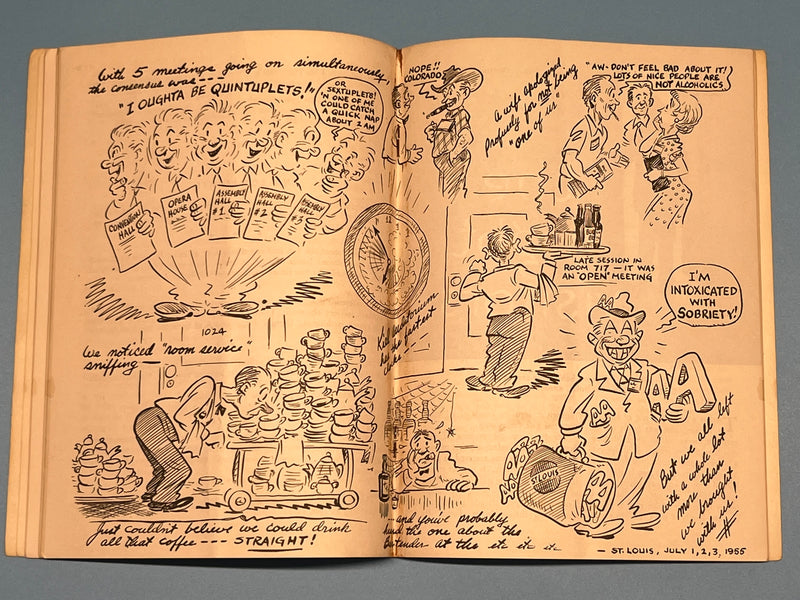 With 5 meetings going on simultaneously,
the consensus was---
"I OUGHTA BE QUINTUPLETS!"
OR
SEXTUPLETS!
'N ONE OF ME
COULD CATCH
A QUICK NAP
ABOUT 2 AM
CONVENTION
HALL
OPERA
HOUSE
ASSEMBLY
HALL
#1
ASSEMBLY
HALL
#2
HALL
#3
1024
We noticed "room service"
sniffing —
Just couldn't believe we could drink
all that coffee ---- STRAIGHT!
NOPE!!
COLORADO
Kiel Auditorium
has the fastest
A wife apologized
profusely for not being
"one of us"
"AW- DON'T FEEL BAD ABOUT IT!
LOTS OF NICE PEOPLE ARE
NOT ALCOHOLICS
LATE SESSION IN
ROOM 717 — IT WAS
AN "OPEN" MEETING
I'M
INTOXICATED
WITH
SOBRIETY!
AA
AA
ST. LOUIS
AA
But we all left
with a whole lot
more than
we brought
with us!
...and you've probably
heard the one about the
bartender at the etc etc etc
— ST. LOUIS, JULY 1, 2, 3, 1955